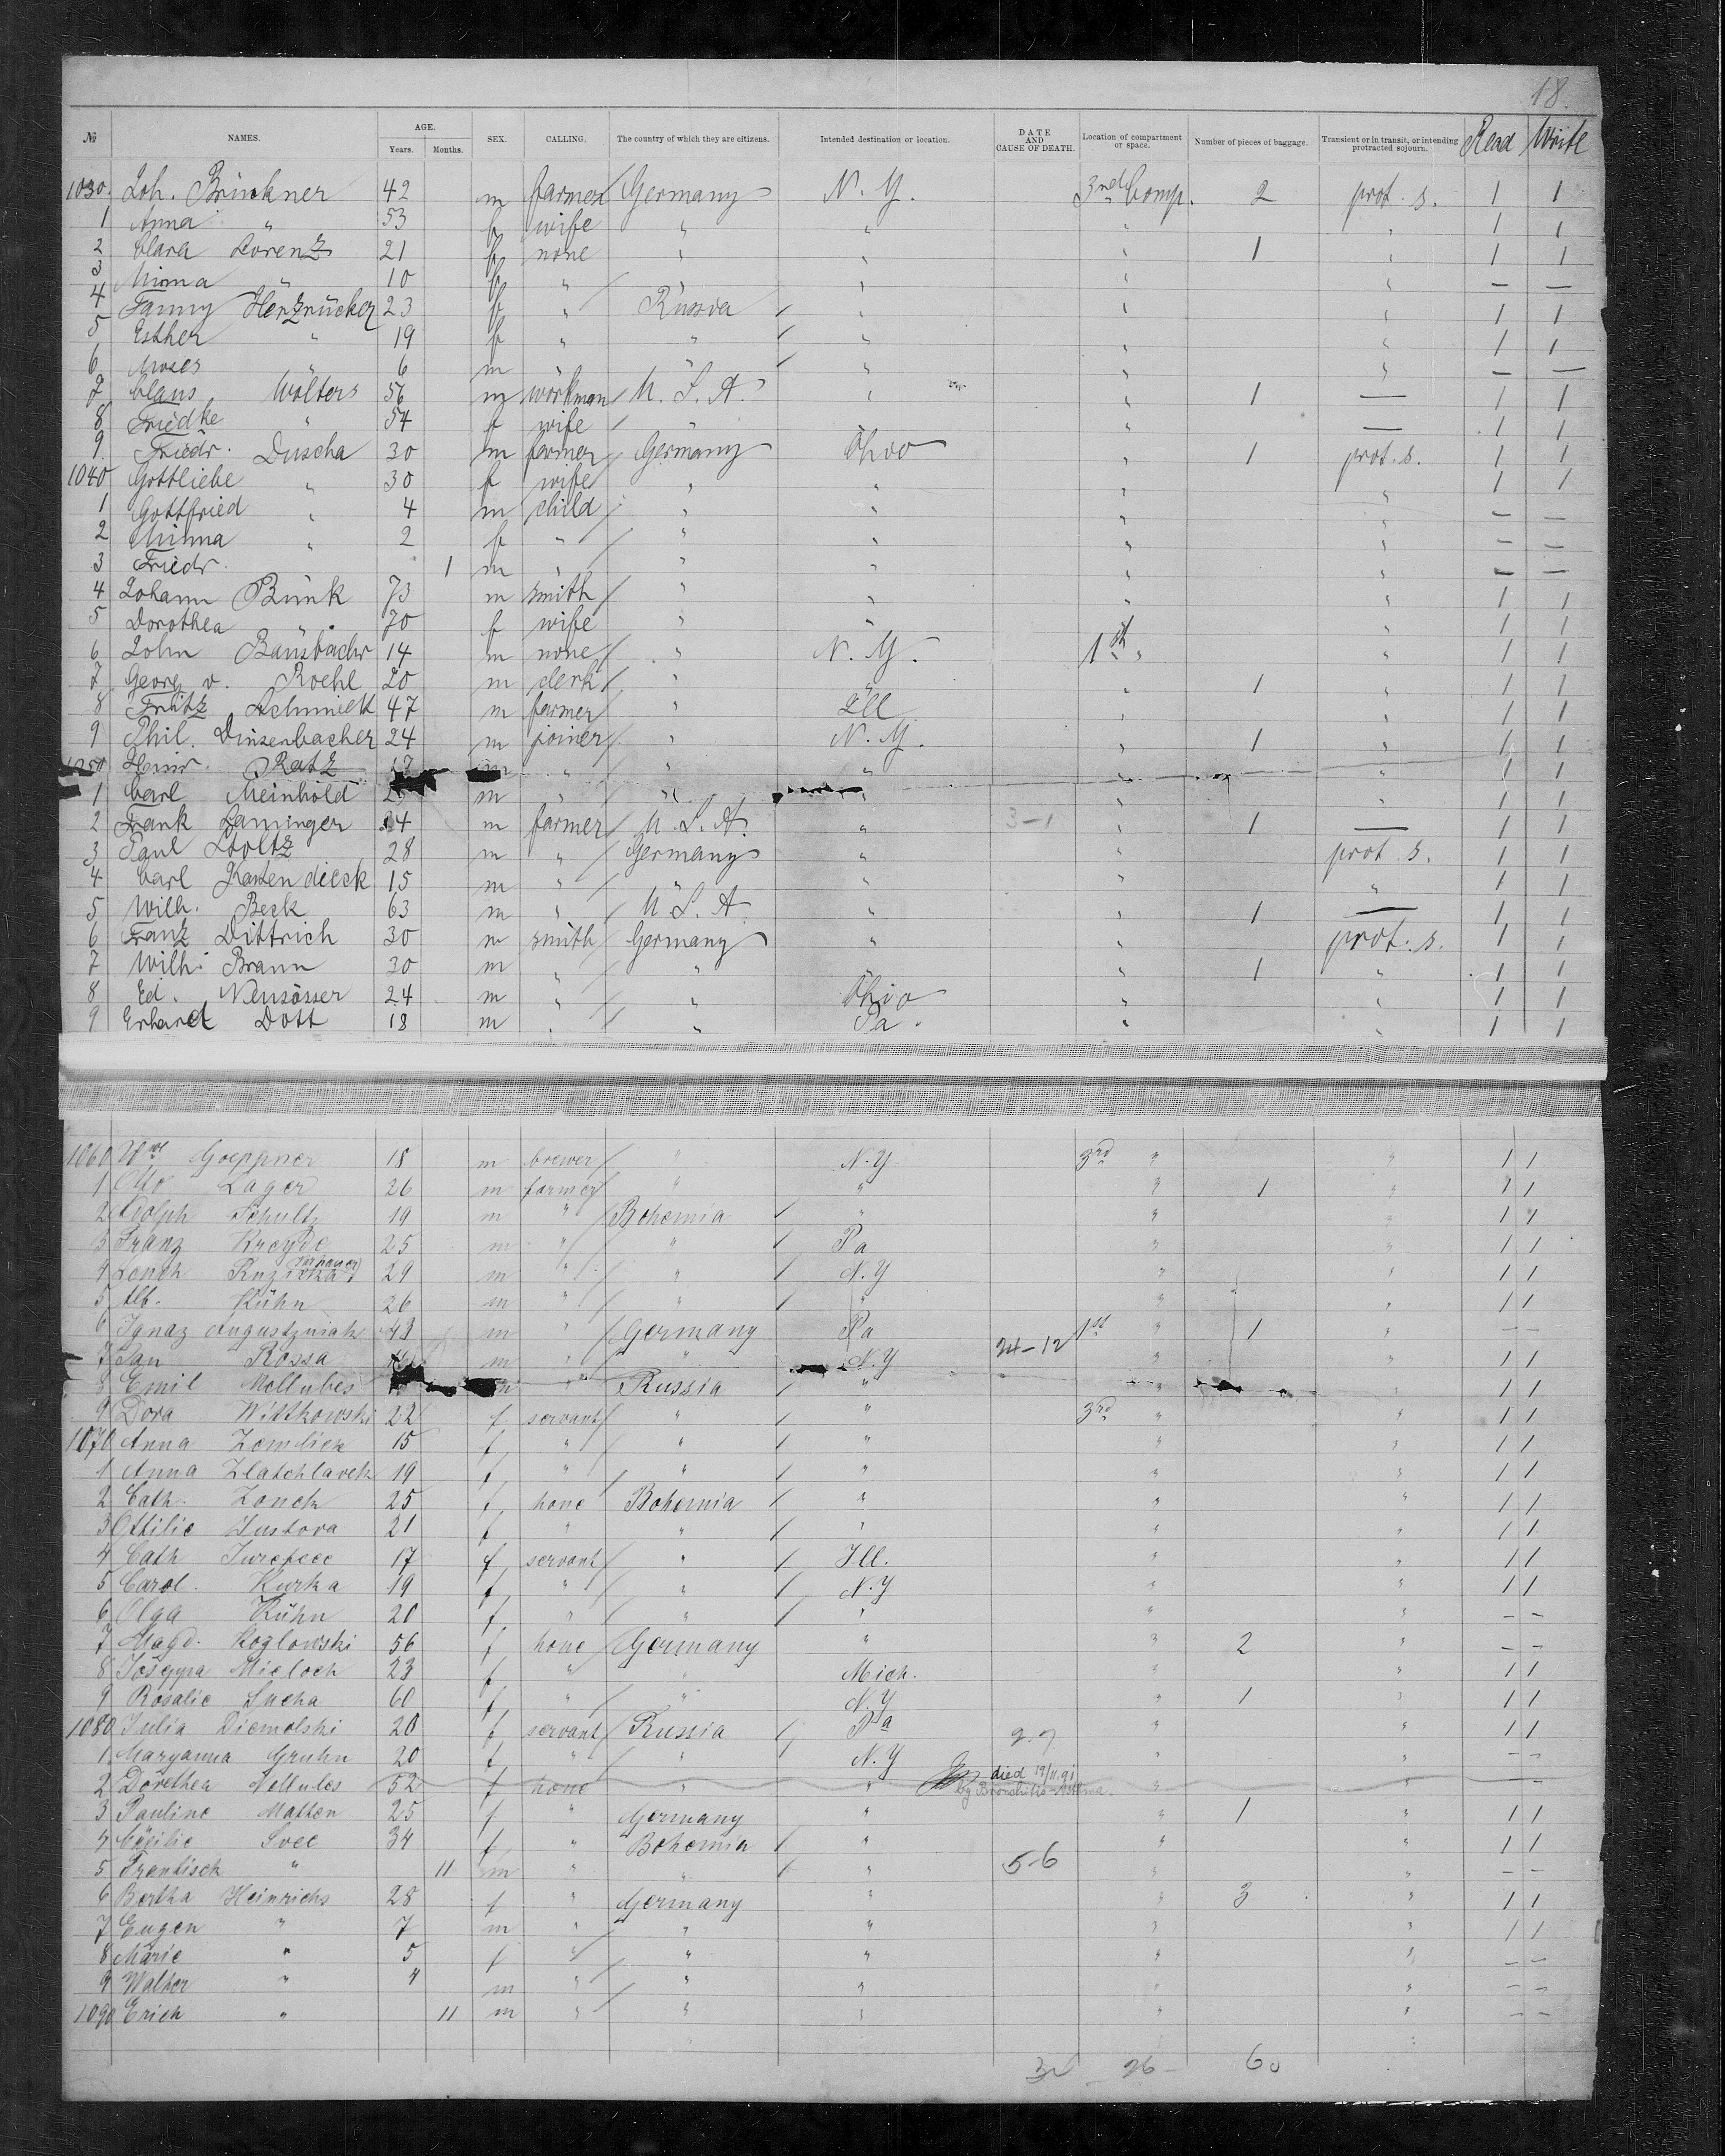 18.
№ NAMES. AGE. Years. Months. SEX. CALLING. The country of which they are citizens. Intended destination or location. DATE AND CAUSE OF DEATH. Location of compartment or space. Number of pieces of baggage. Transient or in transit, or intending protracted sojourn. Read Write
1030. Joh. Brückner 42 m farmer Germany N. Y. 3rd Comp. 2 prot. s. 1 1
1 Anna " 53 f wife " " " " 1 1
2 Clara Lorenz 21 f none " " " 1 " 1 1
3 Minna " 10 f " " " " " — —
4 Fanny Herzrücker 23 f " Russia " " " 1 1
5 Esther " 19 f " " " " " 1 1
6 Moses " 6 m " " " " " — —
7 Claus Wolters 56 m workman U. S. A. " " 1 — 1 1
8 Friedke " 54 f wife " " — 1 1
9 Friedr. Duscha 30 m farmer Germany Ohio " 1 prot. s. 1 1
1040 Gottliebe " 30 f wife " " " " 1 1
1 Gottfried " 4 m child " " " " — —
2 Minna " 2 f " " " " " — —
3 Friedr. 1 m " " " " " — —
4 Johann Bunk 73 m smith " " " " 1 1
5 Dorothea " 70 f wife " " " 1 1
6 John Bansbachr 14 m none " N. Y. 1st " " 1 1
7 Georg v. Roehl 20 m clerk " " " 1 " 1 1
8 Fritz Schmidt 47 m farmer " Ill " " 1 1
9 Phil. Dinsenbacher 24 m joiner " N. Y. " 1 " 1 1
1050 Heinr. Ratz 17 m " " " " " 1 1
1 Carl Meinhold m " " " " " 1 1
2 Frank Laminger 24 m farmer U. S. A. " 3-1 " 1 — 1 1
3 Paul Stoltz 28 m " Germany " " prot. s. 1 1
4 Carl Kastendieck 15 m " " " " " 1 1
5 Wilh. Beck 63 m " U. S. A. " " 1 — 1 1
6 Franz Dittrich 30 m smith Germany " " prot. s. 1 1
7 Wilh. Braun 30 m " " " " 1 " 1 1
8 Ed. Neusösser 24 m " " Ohio " " 1 1
9 Erhardt Dott 18 m " " Pa. " " 1 1
1060 Wm Goeppner 18 m brewer " N. Y 3rd " " 1 1
1 Otto Lager 26 m farmer " " " 1 " 1 1
2 Adolph Schultz 19 m " Bohemia " " " 1 1
3 Franz Kreyde 25 m " " Pa " " 1 1
4 Ruzicka 29 m " " N. Y " " 1 1
5 Alb. Kühn 26 m " " " " " 1 1
6 Ignaz Augustzniak 43 m " Germany Pa 1st " 1 " — —
7 Jan Rossa m " " N. Y 24-12 " " 1 1
8 Emil Mellubes m " Russia " " " 1 1
9 Dora Wittkowski 22 f servant " " 3rd " " 1 1
1070 Anna Zemlick 15 f " " " " " 1 1
1 Anna Zlatchlavek 19 f " " " " " 1 1
2 Cath. Zonck 25 f none Bohemia " " " 1 1
3 Ottilie Justova 21 f " " " " " 1 1
4 Cath 17 f servant " Ill. " " 1 1
5 Carol. Kurka 19 f " " N. Y " " 1 1
6 Olga Kühn 20 f " " " " " — —
7 Magd. Kozlowski 56 f none Germany " " 2 " — —
8 Joseppa Mieloch 23 f " " Mich. " " 1 1
9 Rosalie Sucha 60 f " " N. Y " 1 " 1 1
1080 Julia Diemolski 20 f servant Russia Pa " " 1 1
1 Maryanna Gruhn 20 f " " N. Y " " — —
2 Dorethea Mellubes 52 f none " " died 19/11.91 by Bronchitis-Asthma. " " —
3 Pauline Matten 25 f " Germany " " 1 " 1 1
4 Cäcilie Svec 34 f " Bohemia " " " 1 1
5 Frantisek " 11 m " " " 5-6 " " — —
6 Bertha Heinrichs 28 f " Germany " " 3 " 1 1
7 Eugen " 7 m " " " " " 1 1
8 Marie " 5 f " " " " " — —
9 Walter " 4 m " " " " " — —
1090 Erich " 11 m " " " " " — —
26 — 60